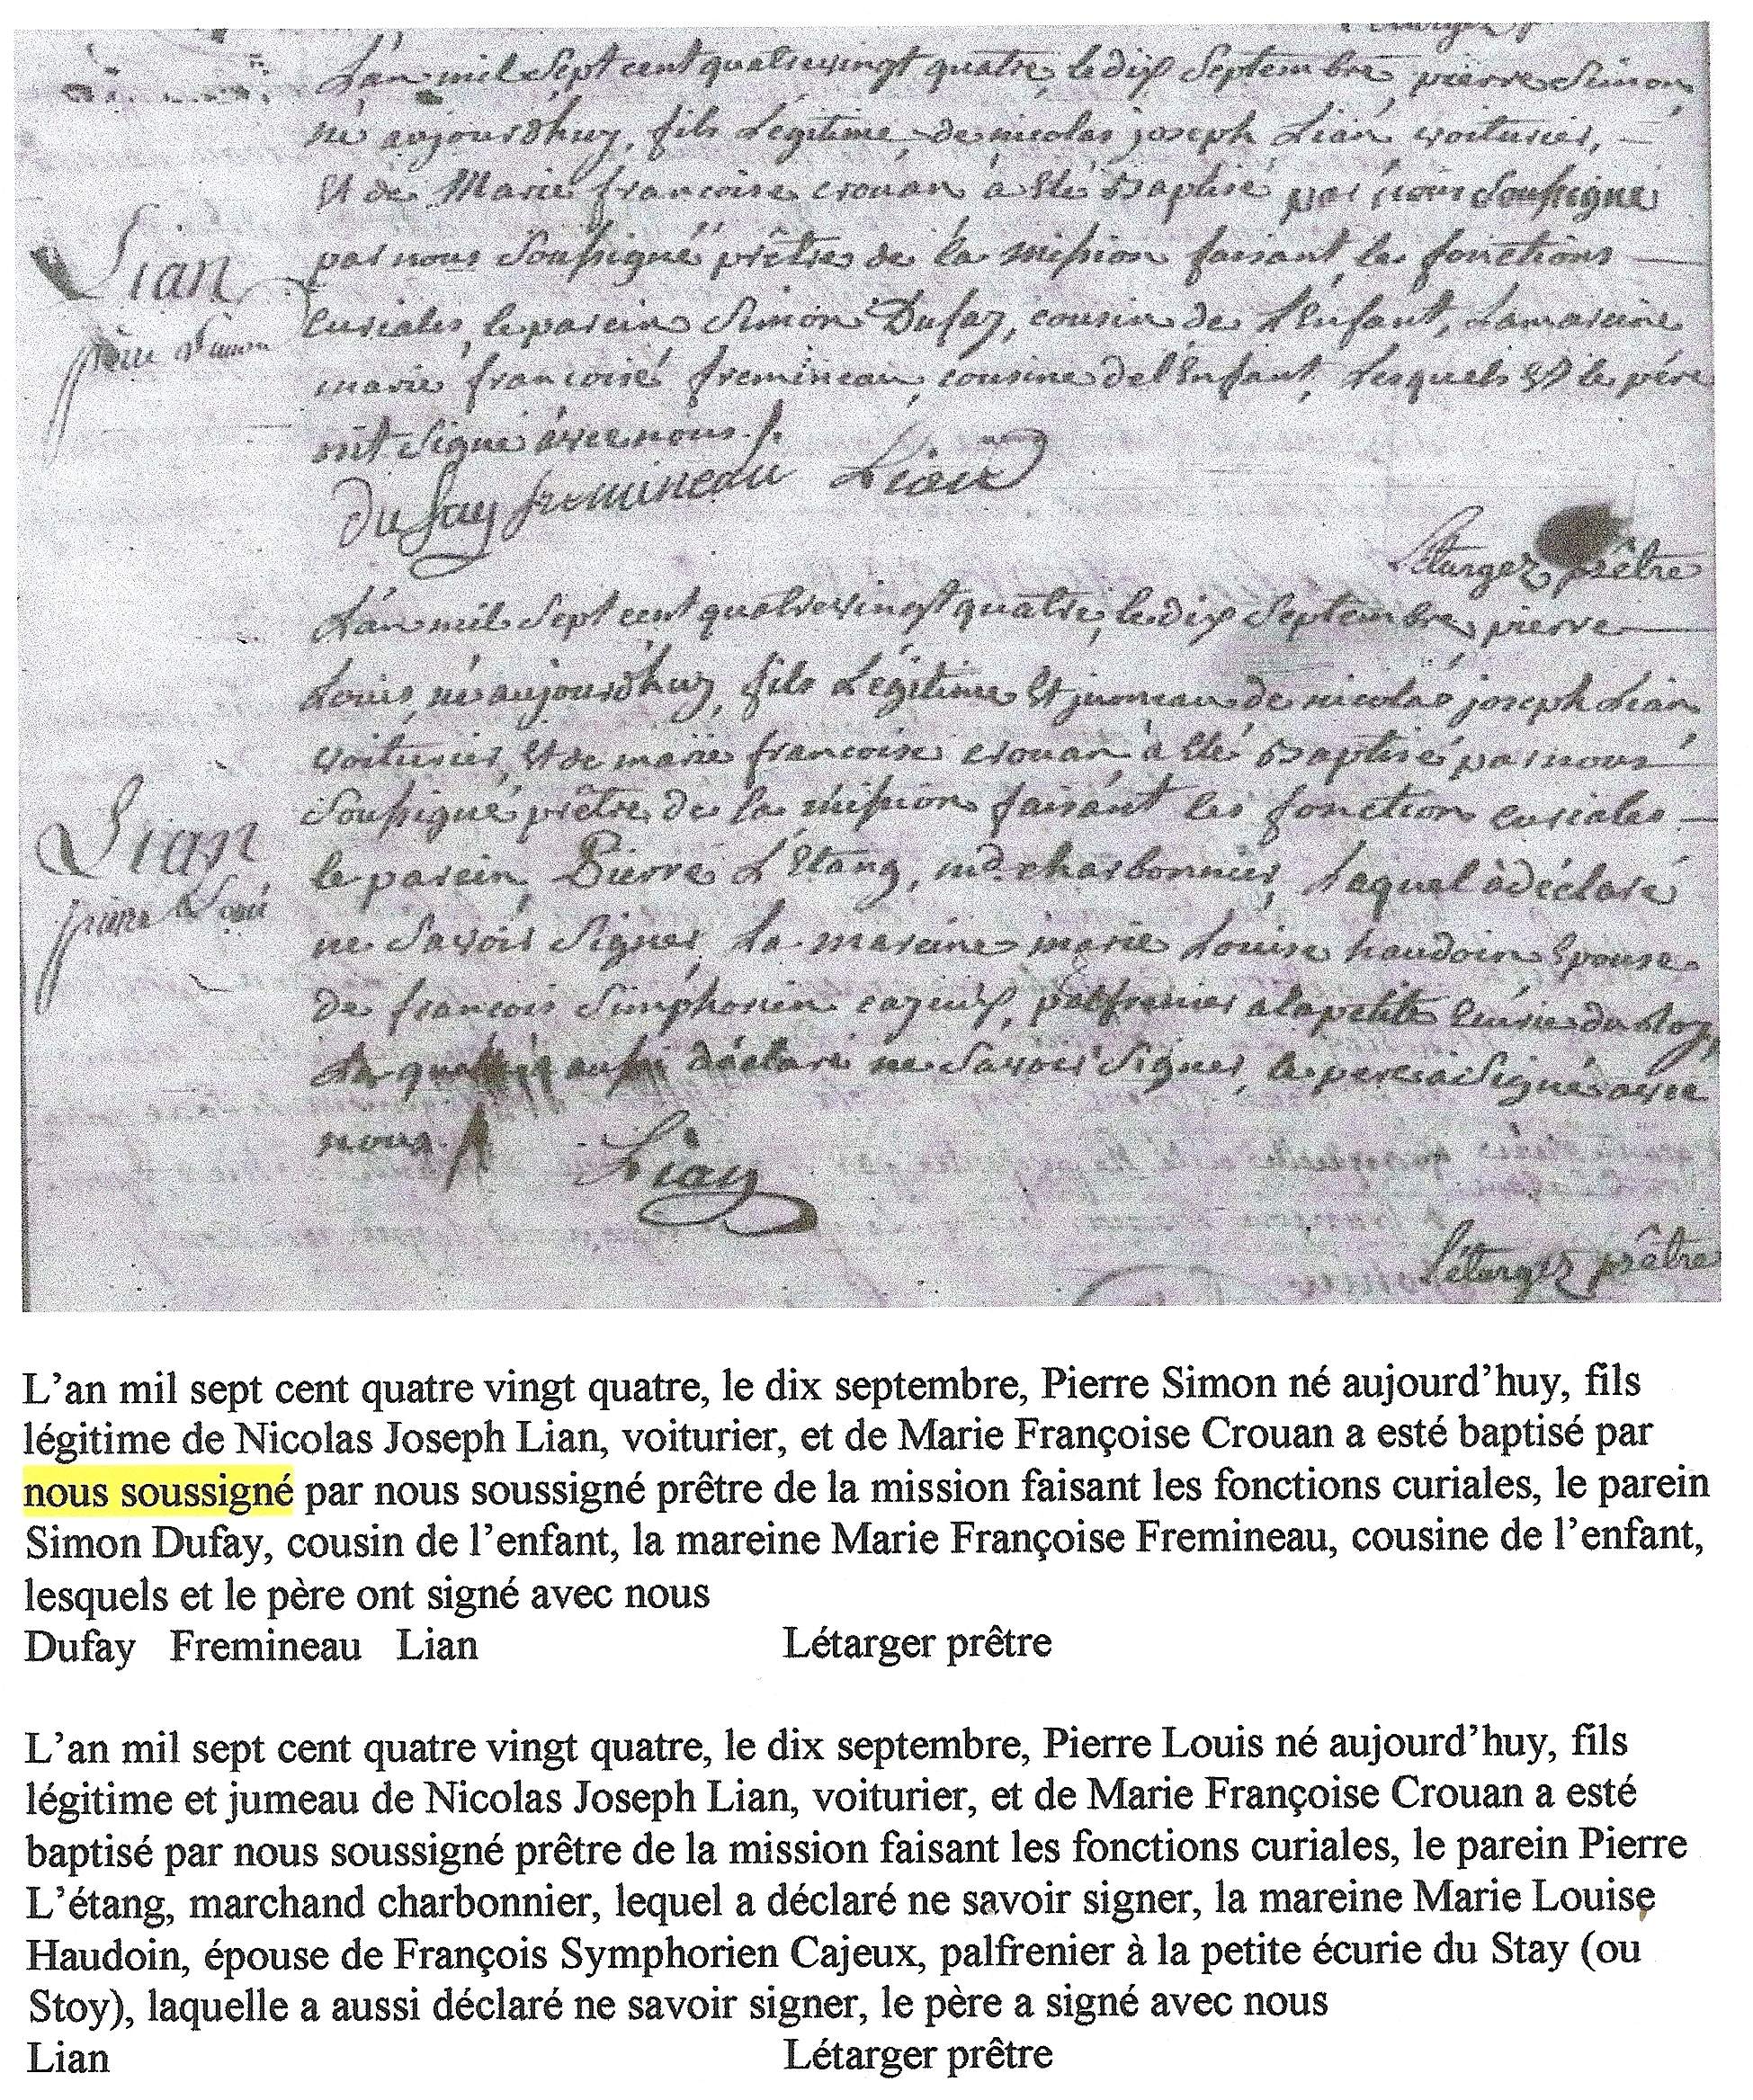 L'an mil Sept cent quatrevingt quatre, le dix Septembre, pierre Simon
né aujourd'huy, fils Légitime de nicolas joseph Lian voiturier,
Et de Marie francoise crouan a Eté Baptisé par nous Soussigné
Lian
pierre Simon
par nous Soussigné prêtre de la mission faisant les fonctions
curiales, le parein Simon Dufay, cousin de L'Enfant, La mareine
marie francoise fremineau, cousine de l'Enfant, Lesquels Et le père
ont Signé avec nous.
Dufay fremineau Lian
Létarger prêtre
L'an mil Sept cent quatrevingt quatre, le dix Septembre, pierre
Louis, né aujourd'huy, fils Légitime Et jumeau de nicolas joseph Lian
voiturier, Et de marie francoise crouan a Eté Baptisé par nous
Soussigné prêtre de la mission faisant les fonction curiales
Lian
pierre Loui
le parein, Pierre L'Etang, md. charbonnier, Lequel a déclaré
ne Savoir Signer, La mareine marie Louise haudoin Epouse
de francois Simphorien cajeux, palfrenier a la petite Ecurie du Roy,
La quelle aussi déclaré ne Savoir Signer, le père a Signé avec
nous.
Lian
Létarger prêtre
L'an mil sept cent quatre vingt quatre, le dix septembre, Pierre Simon né aujourd'huy, fils
légitime de Nicolas Joseph Lian, voiturier, et de Marie Françoise Crouan a esté baptisé par
nous soussigné par nous soussigné prêtre de la mission faisant les fonctions curiales, le parein
Simon Dufay, cousin de l'enfant, la mareine Marie Françoise Fremineau, cousine de l'enfant,
lesquels et le père ont signé avec nous
Dufay Fremineau Lian Létarger prêtre
L'an mil sept cent quatre vingt quatre, le dix septembre, Pierre Louis né aujourd'huy, fils
légitime et jumeau de Nicolas Joseph Lian, voiturier, et de Marie Françoise Crouan a esté
baptisé par nous soussigné prêtre de la mission faisant les fonctions curiales, le parein Pierre
L'étang, marchand charbonnier, lequel a déclaré ne savoir signer, la mareine Marie Louise
Haudoin, épouse de François Symphorien Cajeux, palfrenier à la petite écurie du Stay (ou
Stoy), laquelle a aussi déclaré ne savoir signer, le père a signé avec nous
Lian Létarger prêtre